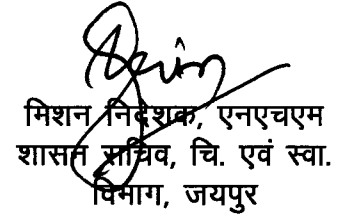 मिशन निदेशक, एनएचएम
शासन सचिव, चि. एवं स्वा.
विभाग, जयपुर